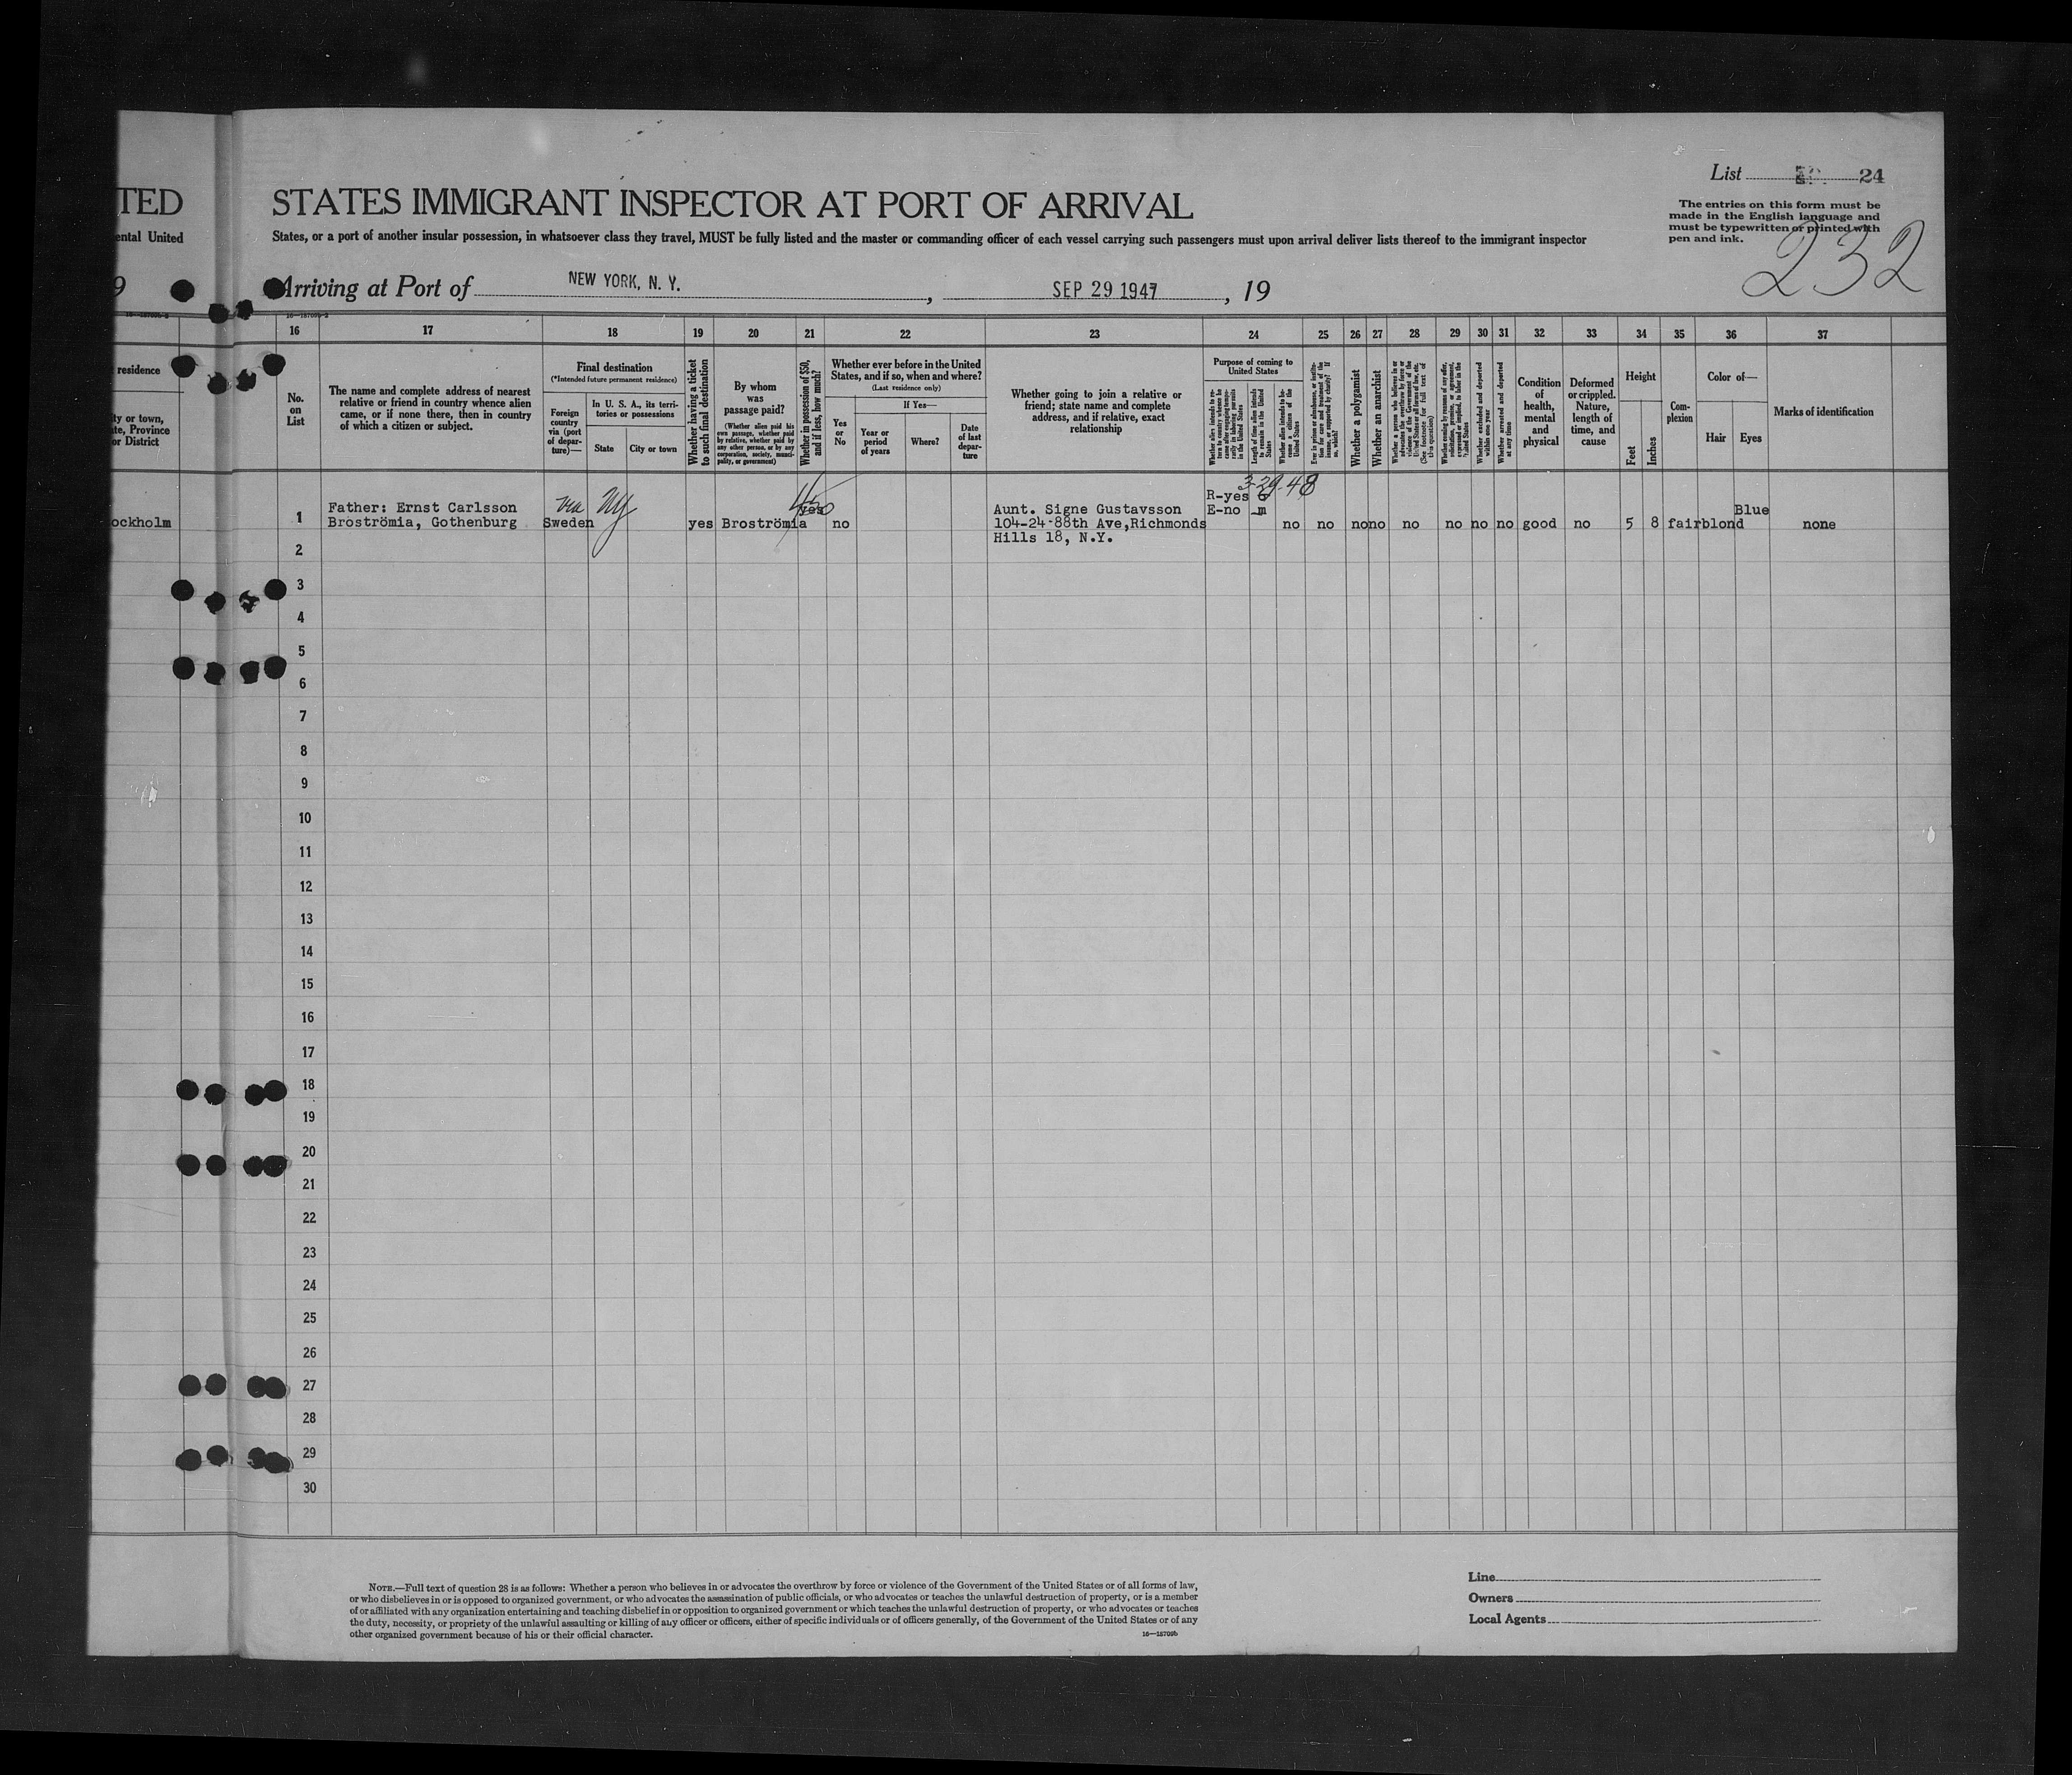 List 24
The entries on this form must be
made in the English language and
must be typewritten or printed with
pen and ink.
232
TED
STATES IMMIGRANT INSPECTOR AT PORT OF ARRIVAL
ental United
States, or a port of another insular possession, in whatsoever class they travel, MUST be fully listed and the master or commanding officer of each vessel carrying such passengers must upon arrival deliver lists thereof to the immigrant inspector
9
Arriving at Port of NEW YORK, N. Y. , SEP 29 1947 , 19
16 17 18 19 20 21 22 23 24 25 26 27 28 29 30 31 32 33 34 35 36 37
residence
ty or town,
te, Province
or District
No.
on
List
The name and complete address of nearest
relative or friend in country whence alien
came, or if none there, then in country
of which a citizen or subject.
Final destination
(*Intended future permanent residence)
Foreign
country
via (port
of depar-
ture)—
In U. S. A., its terri-
tories or possessions
State
City or town
Whether having a ticket
to such final destination
By whom
was
passage paid?
(Whether alien paid his
own passage, whether paid
by relative, whether paid by
any other person, or by any
corporation, society, munici-
pality, or government)
Whether in possession of $50,
and if less, how much?
Whether ever before in the United
States, and if so, when and where?
(Last residence only)
Yes
or
No
If Yes—
Year or
period
of years
Where?
Date
of last
depar-
ture
Whether going to join a relative or
friend; state name and complete
address, and if relative, exact
relationship
Purpose of coming to
United States
Whether alien intends to re-
turn to country whence he
came after engaging tempo-
rarily in laboring pursuits
in the United States
Length of time alien intends
to remain in the United
States
Whether alien intends to be-
come a citizen of the
United States
Ever in prison or almshouse, or institu-
tion for care and treatment of the
insane, or supported by charity? If
so, which?
Whether a polygamist
Whether an anarchist
Whether a person who believes in or
advocates the overthrow by force or
violence of the Government of the
United States or all forms of law, etc.
(See footnote for full text of
this question)
Whether coming by reason of any offer,
solicitation, promise, or agreement,
expressed or implied, to labor in the
United States
Whether excluded and deported
within one year
Whether arrested and deported
at any time
Condition
of
health,
mental
and
physical
Deformed
or crippled.
Nature,
length of
time, and
cause
Height
Feet
Inches
Com-
plexion
Color of—
Hair
Eyes
Marks of identification
3-29-48
R-yes 6
E-no m
ockholm
1
Father: Ernst Carlsson
Broströmia, Gothenburg
via
Sweden
NY
yes
Broströmia
yes
no
Aunt. Signe Gustavsson
104-24-88th Ave,Richmonds
Hills 18, N.Y.
no no no no no no no no good no 5 8 fair blond Blue none
2
3
4
5
6
7
8
9
10
11
12
13
14
15
16
17
18
19
20
21
22
23
24
25
26
27
28
29
30
NOTE.—Full text of question 28 is as follows: Whether a person who believes in or advocates the overthrow by force or violence of the Government of the United States or of all forms of law,
or who disbelieves in or is opposed to organized government, or who advocates the assassination of public officials, or who advocates or teaches the unlawful destruction of property, or is a member
of or affiliated with any organization entertaining and teaching disbelief in or opposition to organized government or which teaches the unlawful destruction of property, or who advocates or teaches
the duty, necessity, or propriety of the unlawful assaulting or killing of any officer or officers, either of specific individuals or of officers generally, of the Government of the United States or of any
other organized government because of his or their official character.
16—18709b
Line
Owners
Local Agents